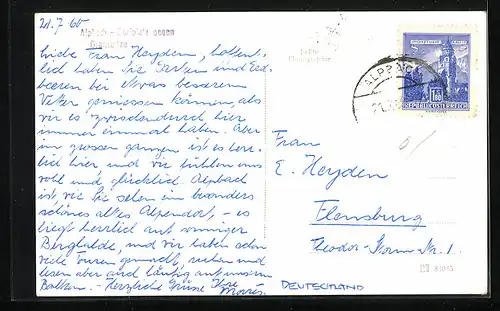 21.7.65
Alpbach
Liebe Frau Heyden, hoffent-
lich haben Sie Ferien und Erd-
beeren bei etwas besserem
Wetter geniessen können, als
wir es zwischendurch hier
immer einmal haben. Aber
im grossen ganzen ist es herr-
lich hier und wir fühlen uns
wohl und glücklich. Alpbach
ist, wie Sie sehen ein besonders
schönes altes Alpendorf, – es
liegt herrlich auf sonniger
Berghalde, und wir haben schon
viele Touren gemacht, ruhen und
lesen aber auch häufig auf unserem
Balkon. – Herzliche Grüsse Ihre
ALPBACH
REPUBLIK ÖSTERREICH
Frau
E. Heyden
Flensburg
Theodor-Storm-Str. 1.
DEUTSCHLAND